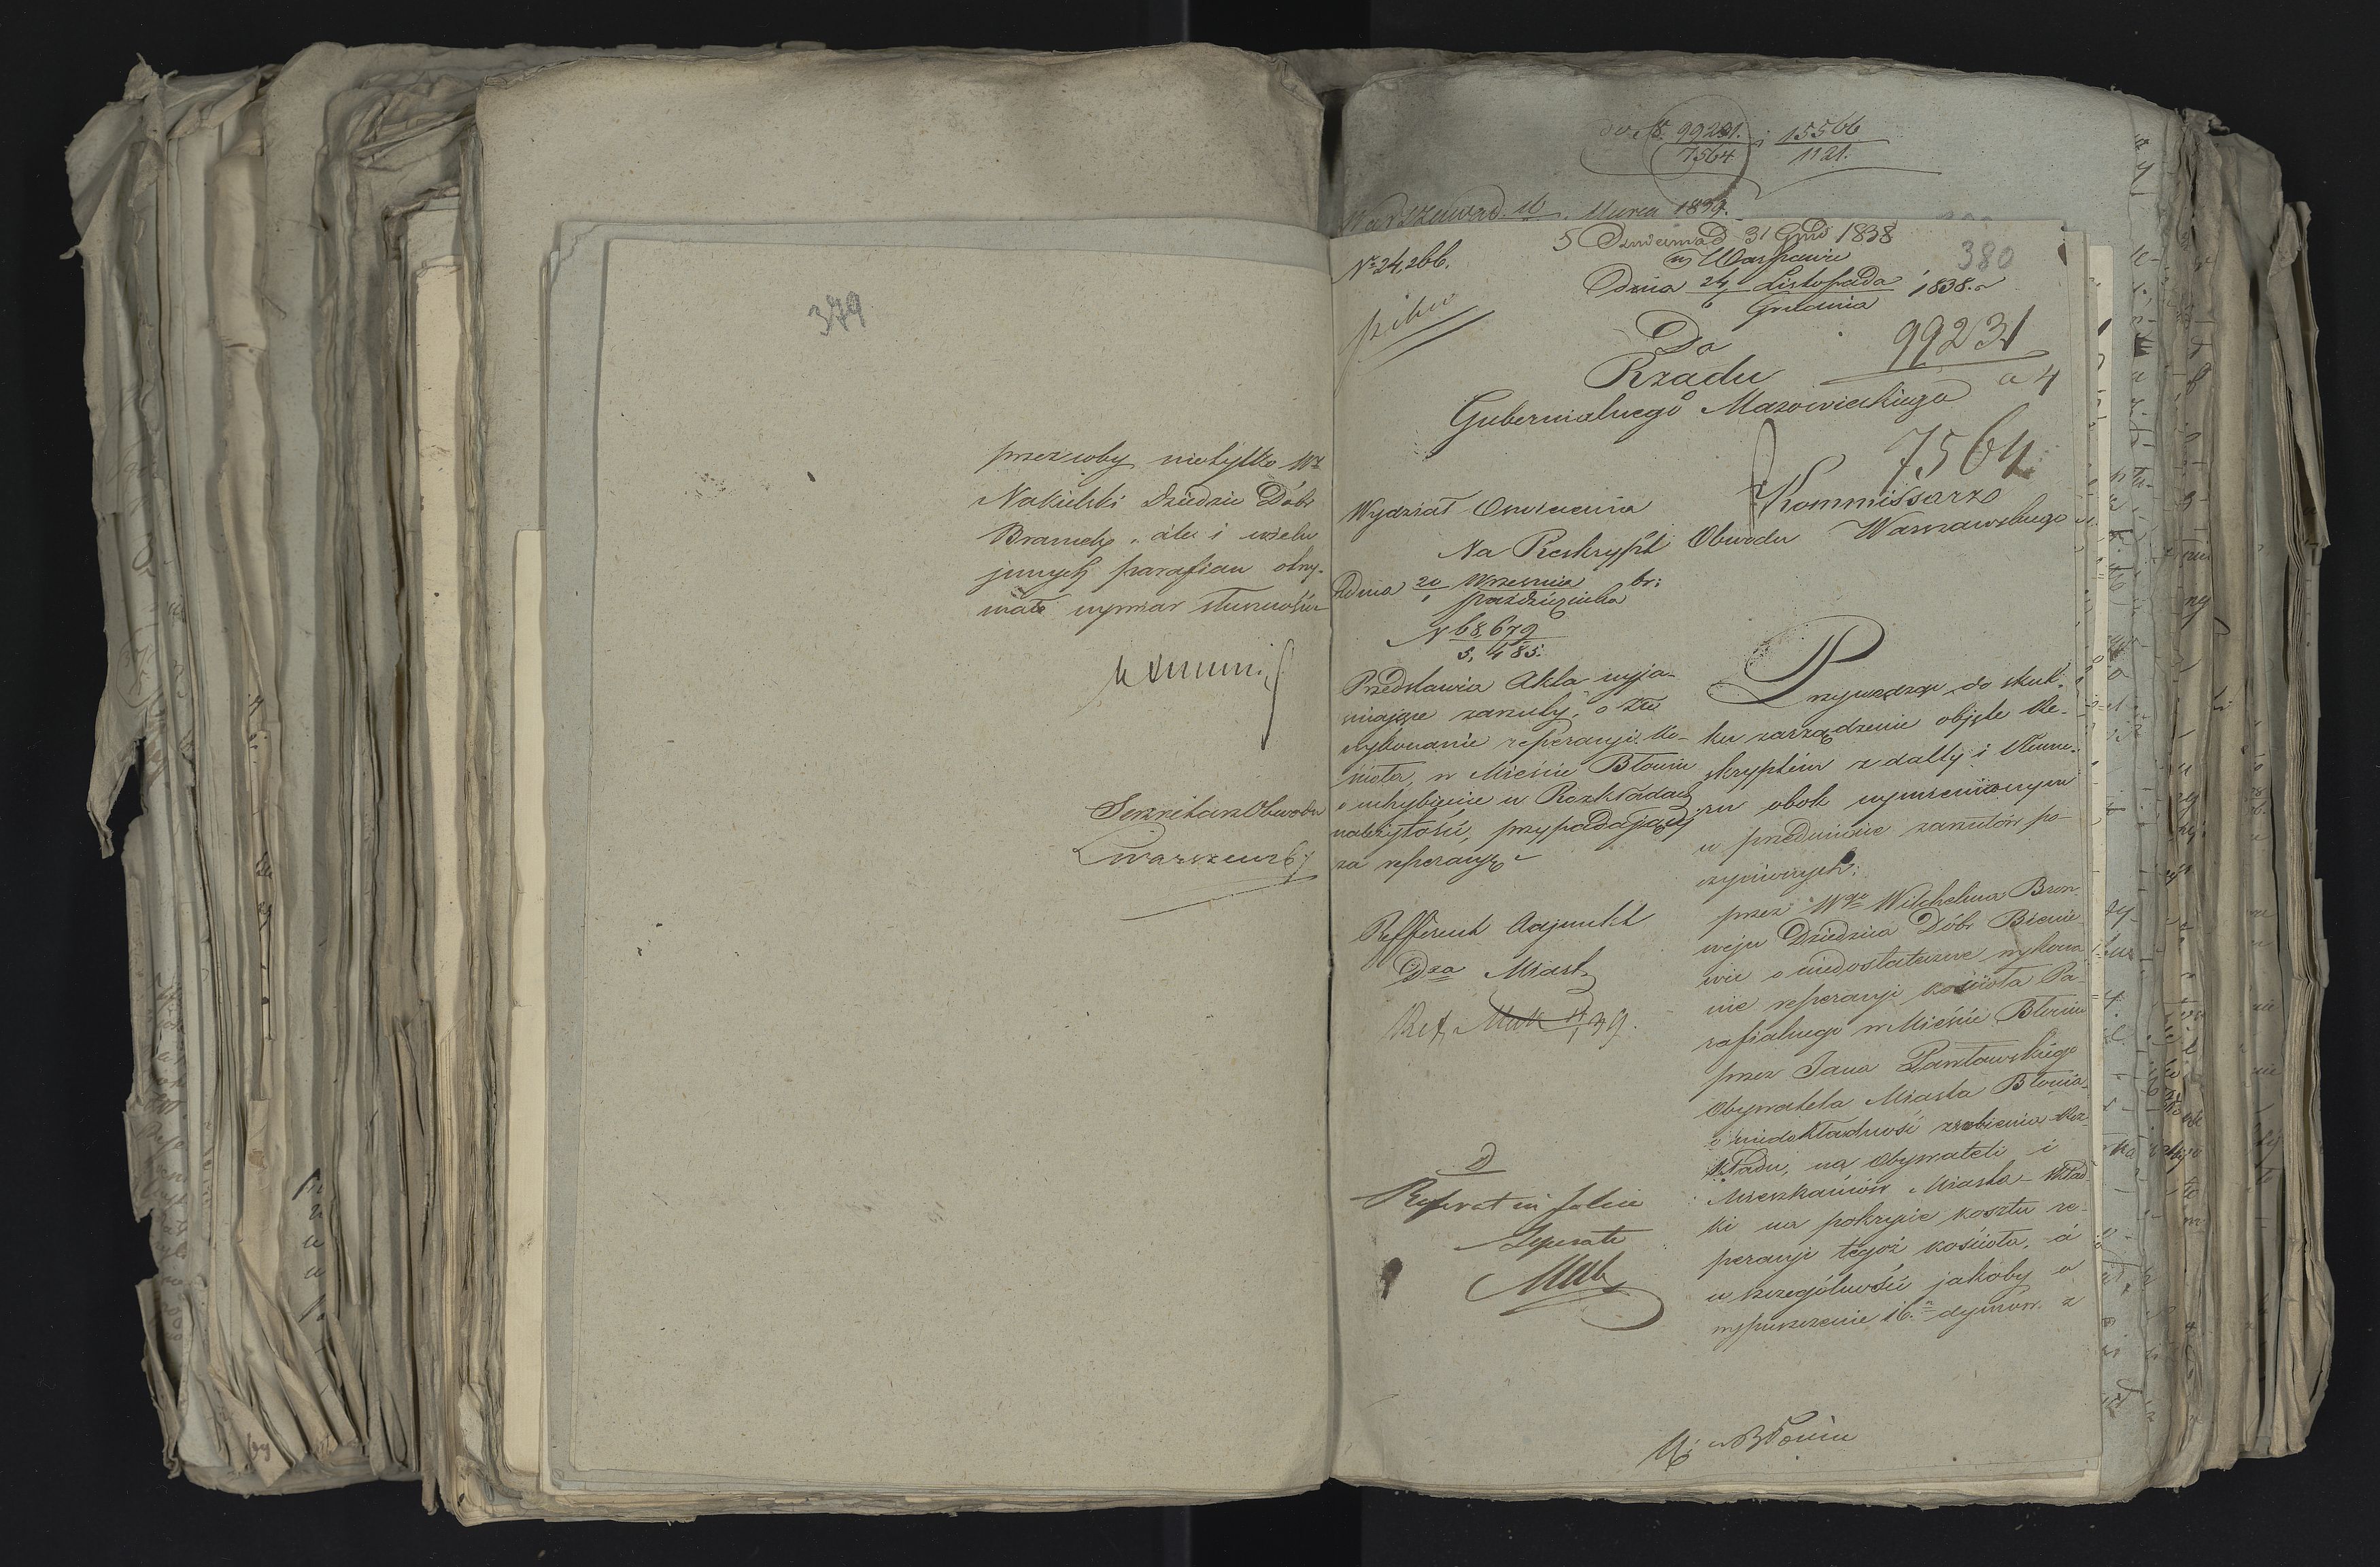 379
przez coby nietylko Wż
Nakielski Dziedzic Dóbr
Bramek, ale i wielu
innych parafian otrzy-
mało wymiar słuszności
Sekretarz Obwodu
Warszaws
do N. 99231. i 15566
7564 1121.
Warszawa d. 16 Marca 1839.
380
31 Gru 1838
w Warszawie
Nr 24,266.
Dnia 24 Listopada 1838 r
6 Grudnia
pilne
Do
Rządu
Gubernialnego Mazowieckiego
99231
a 4
7564
Kommissarz
Obwodu Warszawskiego
Wydział Oswiecenia
Na Reskrypt
Zdnia 20 Wrzesnia br:
Października
N 68,679
5,485.
Przedstawia Akta wyja-
sniające zarzuty, o złe
wykonanie reperacyi Ko-
scioła, w Miescie Błoniu
o uchybienie w Rozkładach
należytości, przypadającej
za reperacyę
Refferent Adjunkt
Dza Miast
Ref. Mak 39.
D
Referat in folio
Seperate
Mak
Przywodząc do skut-
ku zarządzenie objęte Re-
skryptem z datty i Nume-
ru obok wymienionym
w przedmiocie zarzutów po-
czynionych:
przez Wgo Wilchelma Bron
weju Dziedzica Dóbr Bienie
wic o niedostateczne wykona
nie reperacyi kościoła Pa-
rafialnego w Mieście Błoniu
przez Jana Pawłowskiego
Obywatela Miasta Błonia
o niedokładność zrobienia Roz-
kładu, na Obywateli i
Mieszkańców Miasta - Skład
ki na pokrycie kosztu re-
peracyi tegoż kościoła, á
w szczególności jakoby o
wypuszczenie 16. dymów z
M. Błoniu